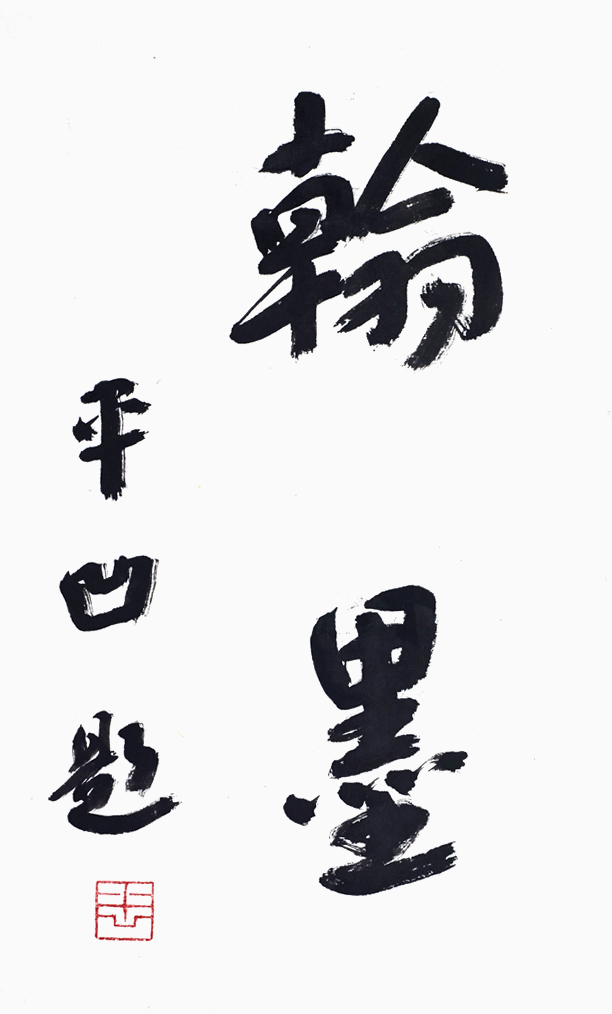 翰墨
平凹题